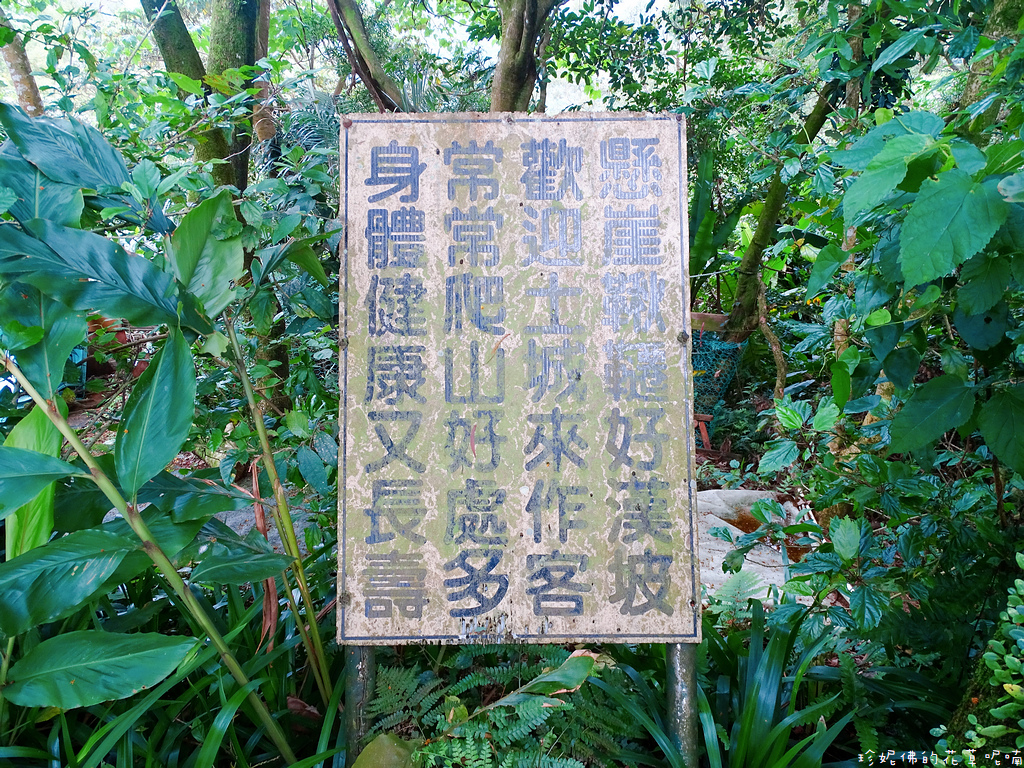 懸崖鞦韆好漢坡
歡迎土城來作客
常常爬山好處多
身體健康又長壽
珍妮佛的花草呢喃